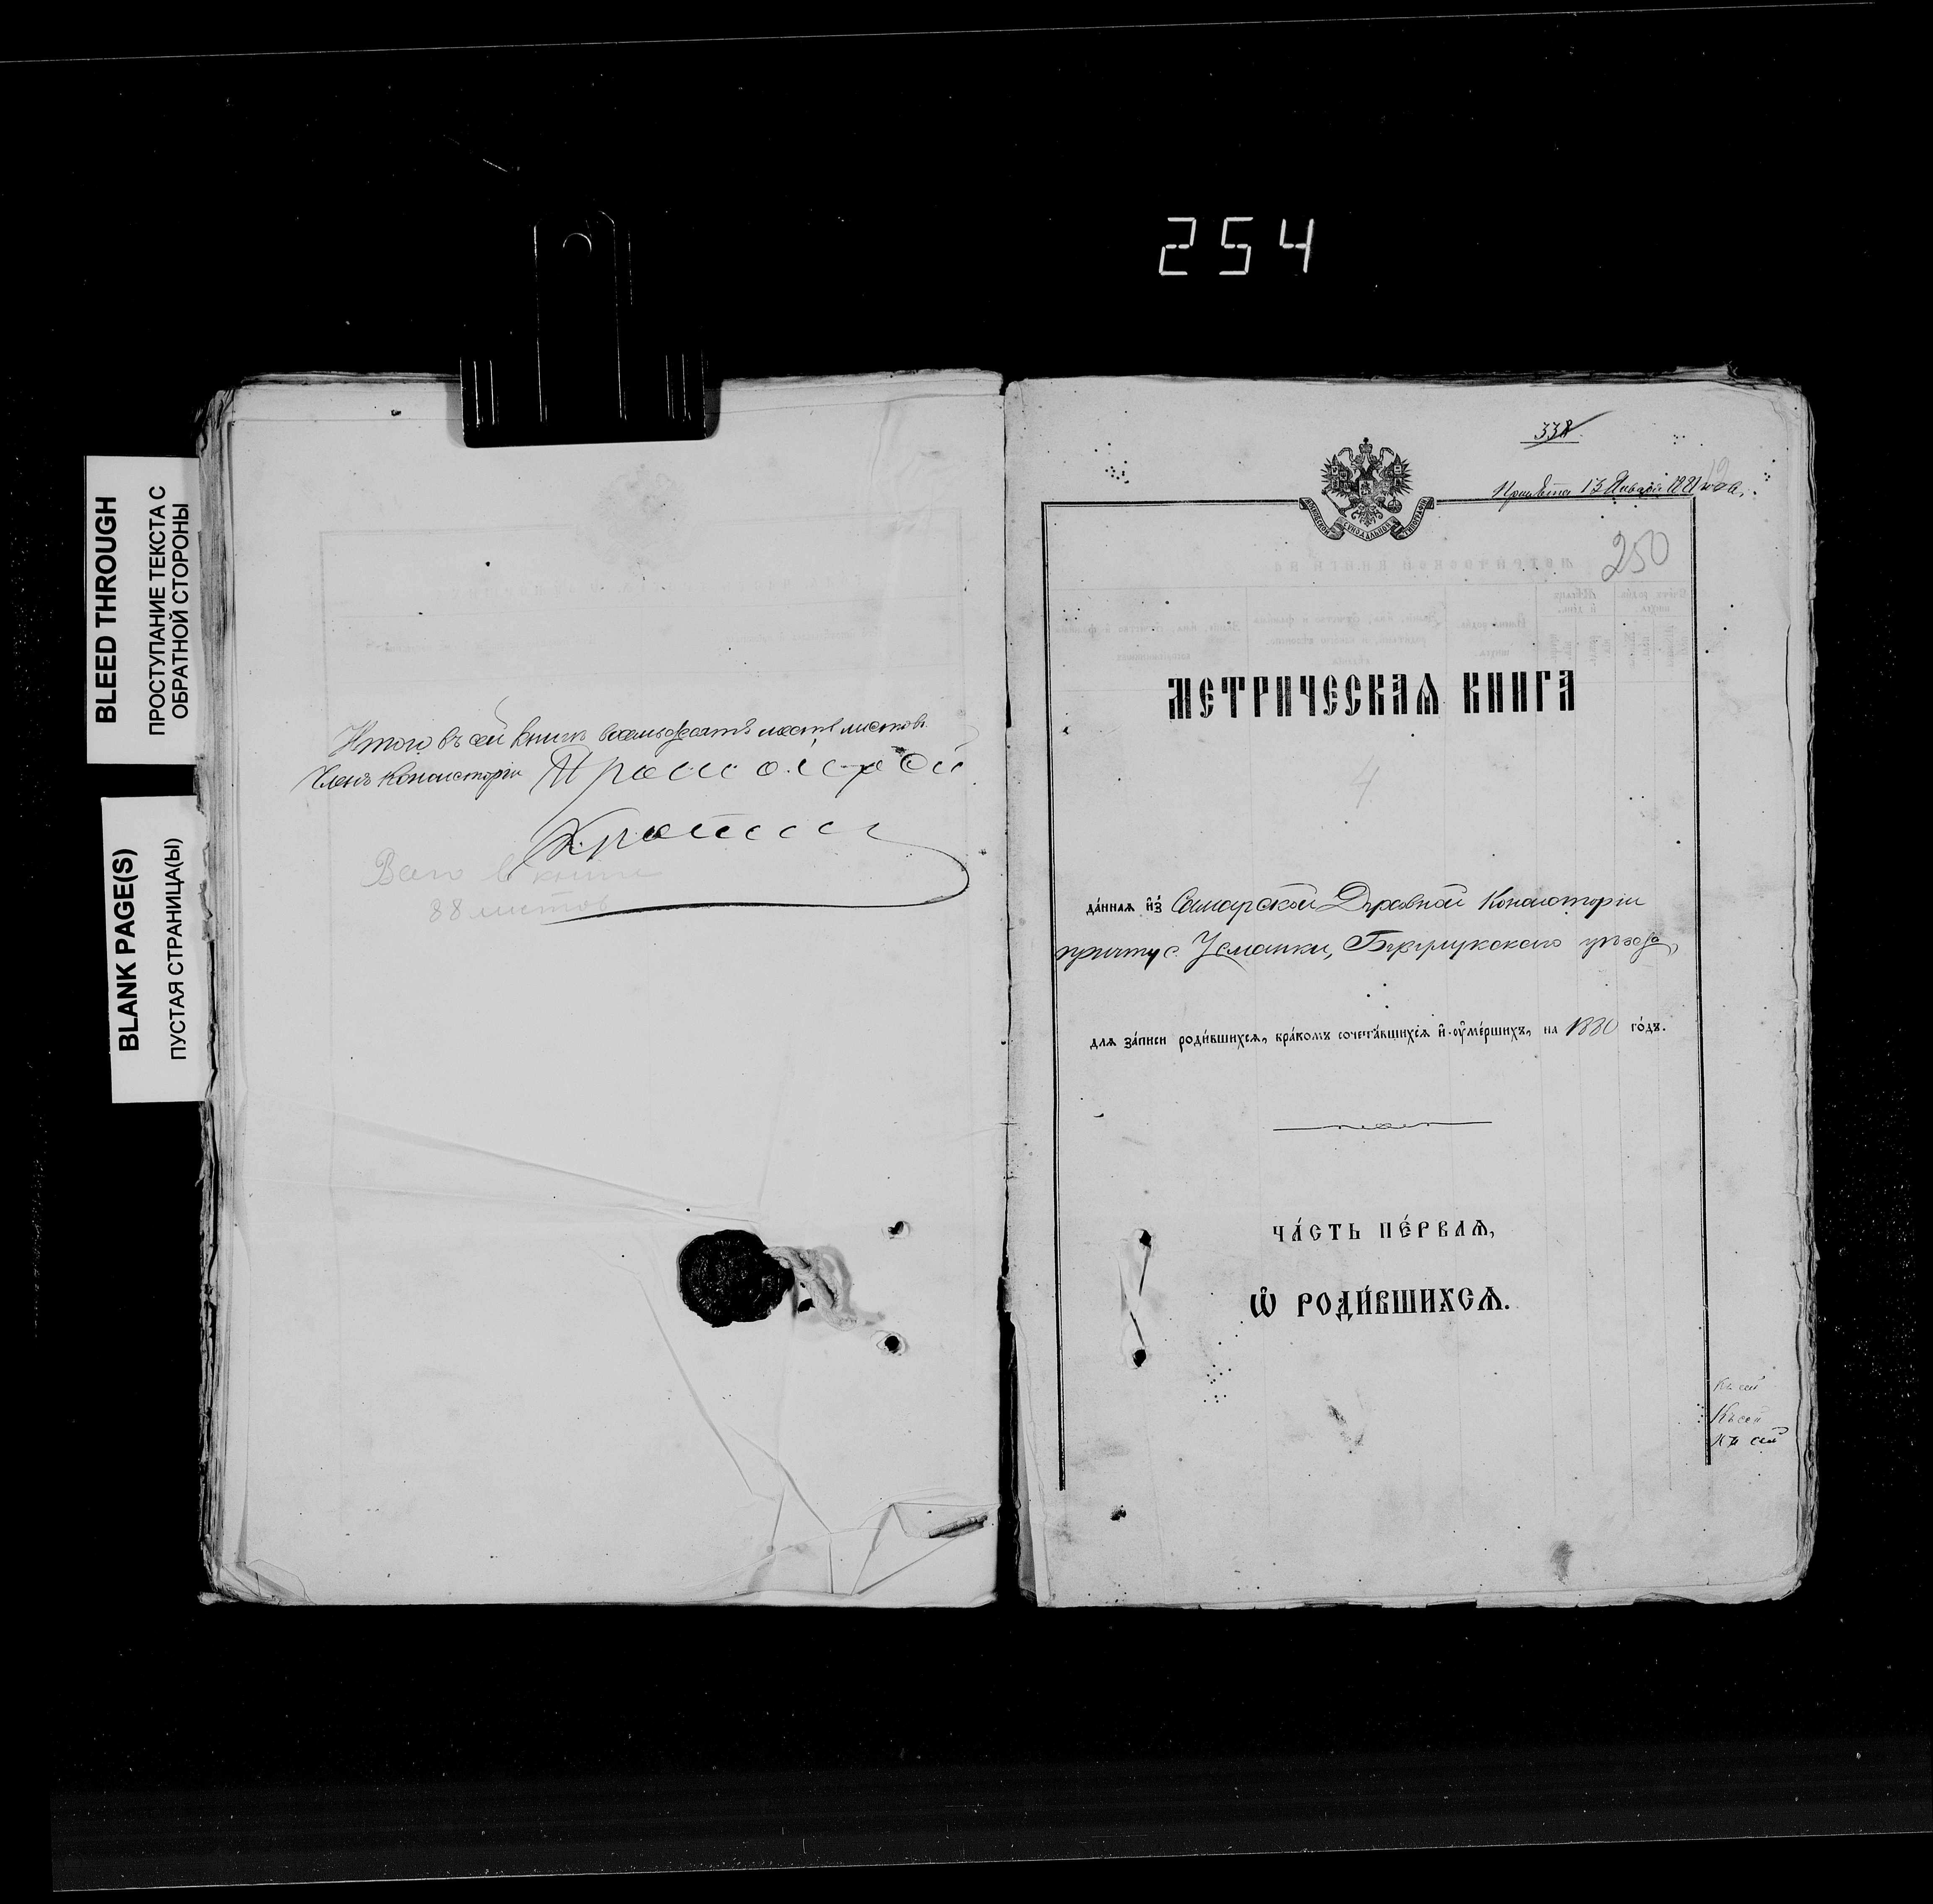 254
BLEED THROUGH
ПРОСТУПАНИЕ ТЕКСТА С
ОБРАТНОЙ СТОРОНЫ
BLANK PAGE(S)
ПУСТАЯ СТРАНИЦА(Ы)
Итого въ сей книгѣ восемьдесятъ шесть листовъ.
Членъ Консисторіи Протоіерей
в книге
88 листов
338
13 Января 1881 года.
МОСКОВСКОЙ СУНОДАЛЬНОЙ ТИПОГРАФІИ
250
МЕТРИЧЕСКАѦ КНИГА
4
да́ннаѧ и҆з̾ Самарской Духовной Консисторіи
причту с. Усманки, Бузулукскаго уѣзда,
для за́писи роди́вшихсѧ, бра́комъ сочета́вшихсѧ и҆ ᲂу҆ме́ршихъ, на 1880 го́дъ.
ЧА́СТЬ ПЕ́РВАѦ,
Ѽ РОДИ́ВШИХСѦ.
Къ сей
Къ сей
Къ сей